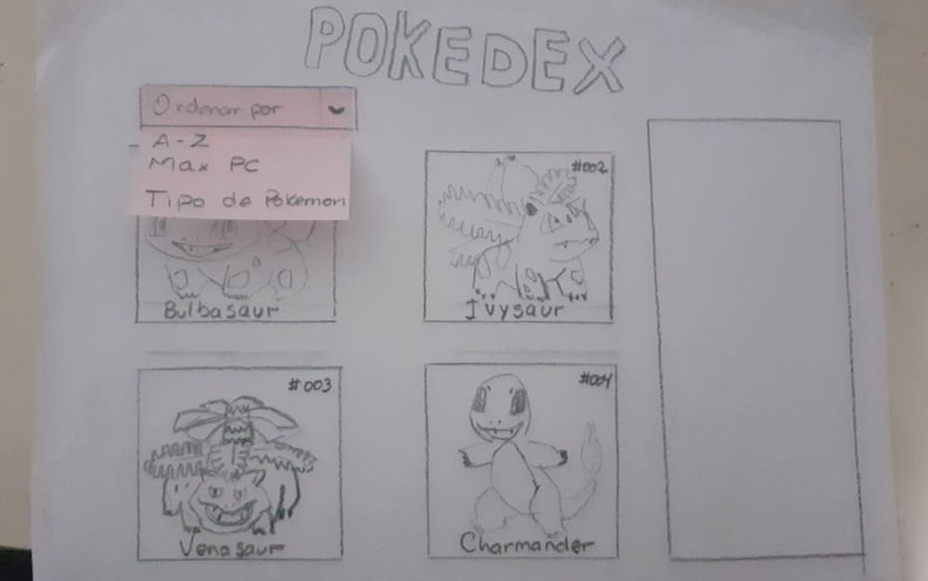 POKEDEX
Ordenar por
A-Z
Max PC
Tipo de Pokemon
Bulbasaur
#002
Ivysaur
#003
Venasaur
#004
Charmander